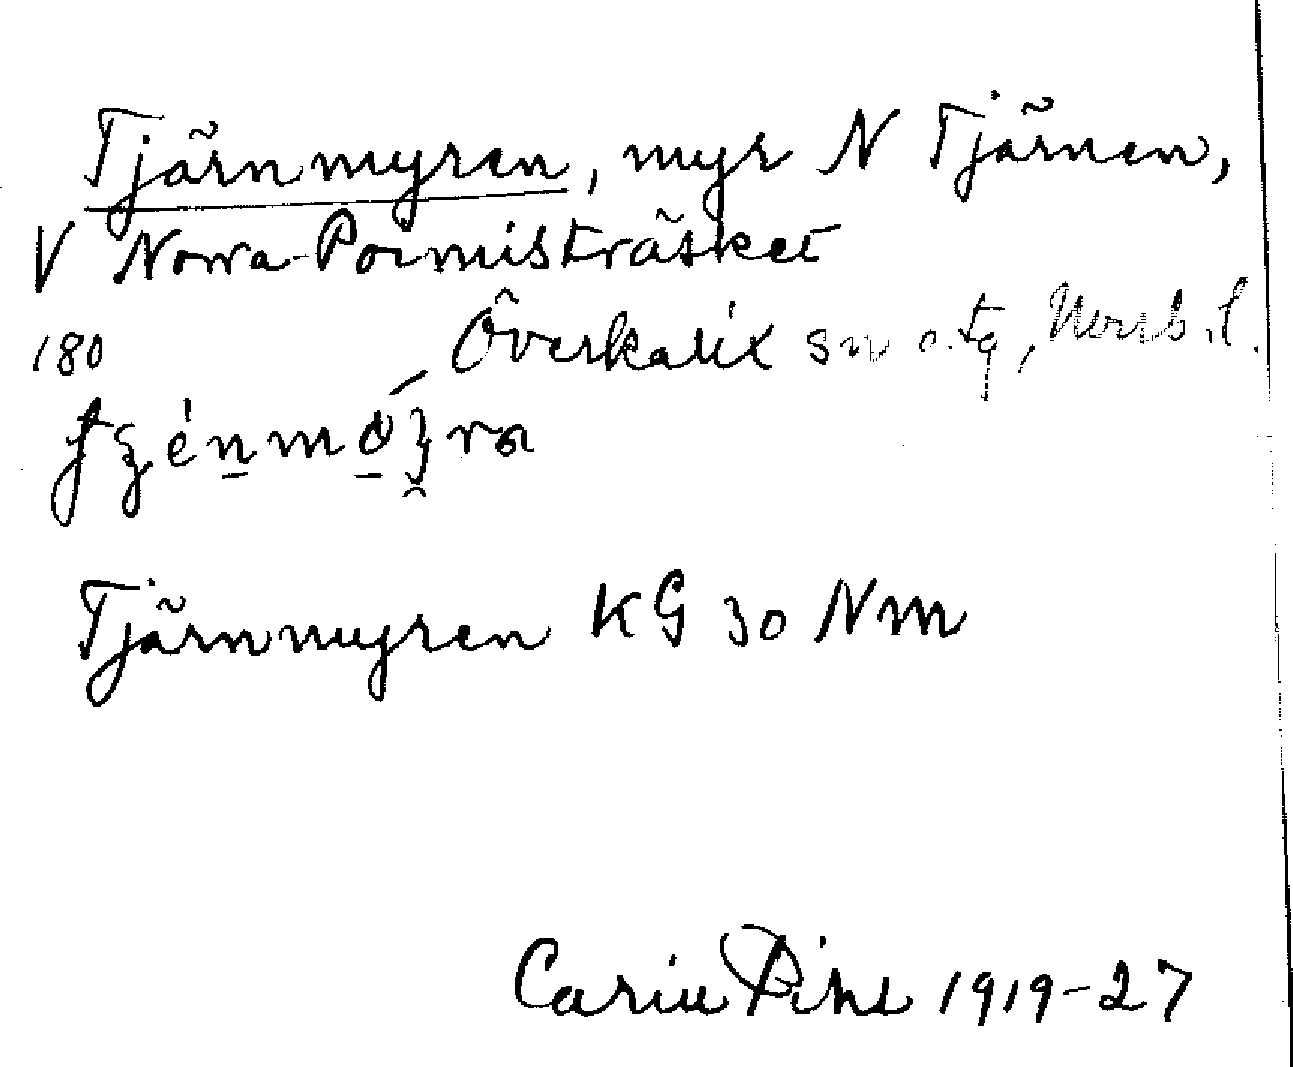 Tjärnmyren, myr N Tjärnen,
V Norra Poimisträsket
180 Överkalix sn o. tg, Norrb. l.
Tjärnmyren KG 30 Nm
Carin Pihl 1919-27